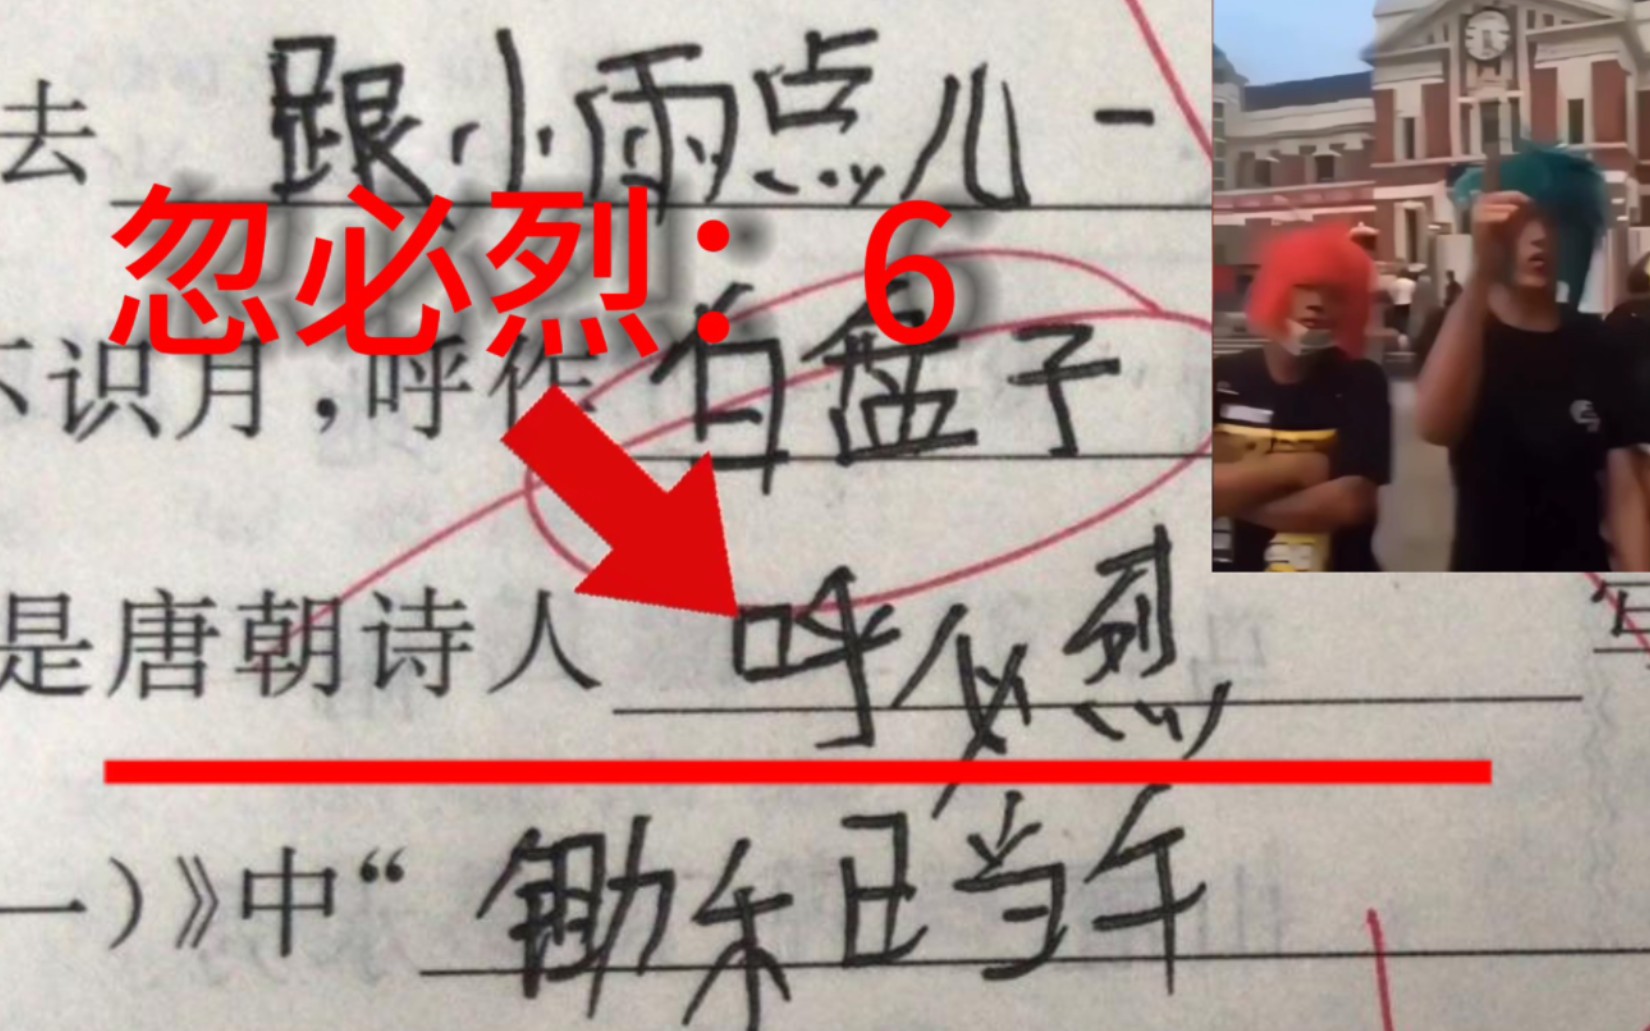 去 跟小雨点儿一
忽必烈：6
不识月，呼作 白孟子
是唐朝诗人 呼必烈
一）》中“ 锄禾日当午